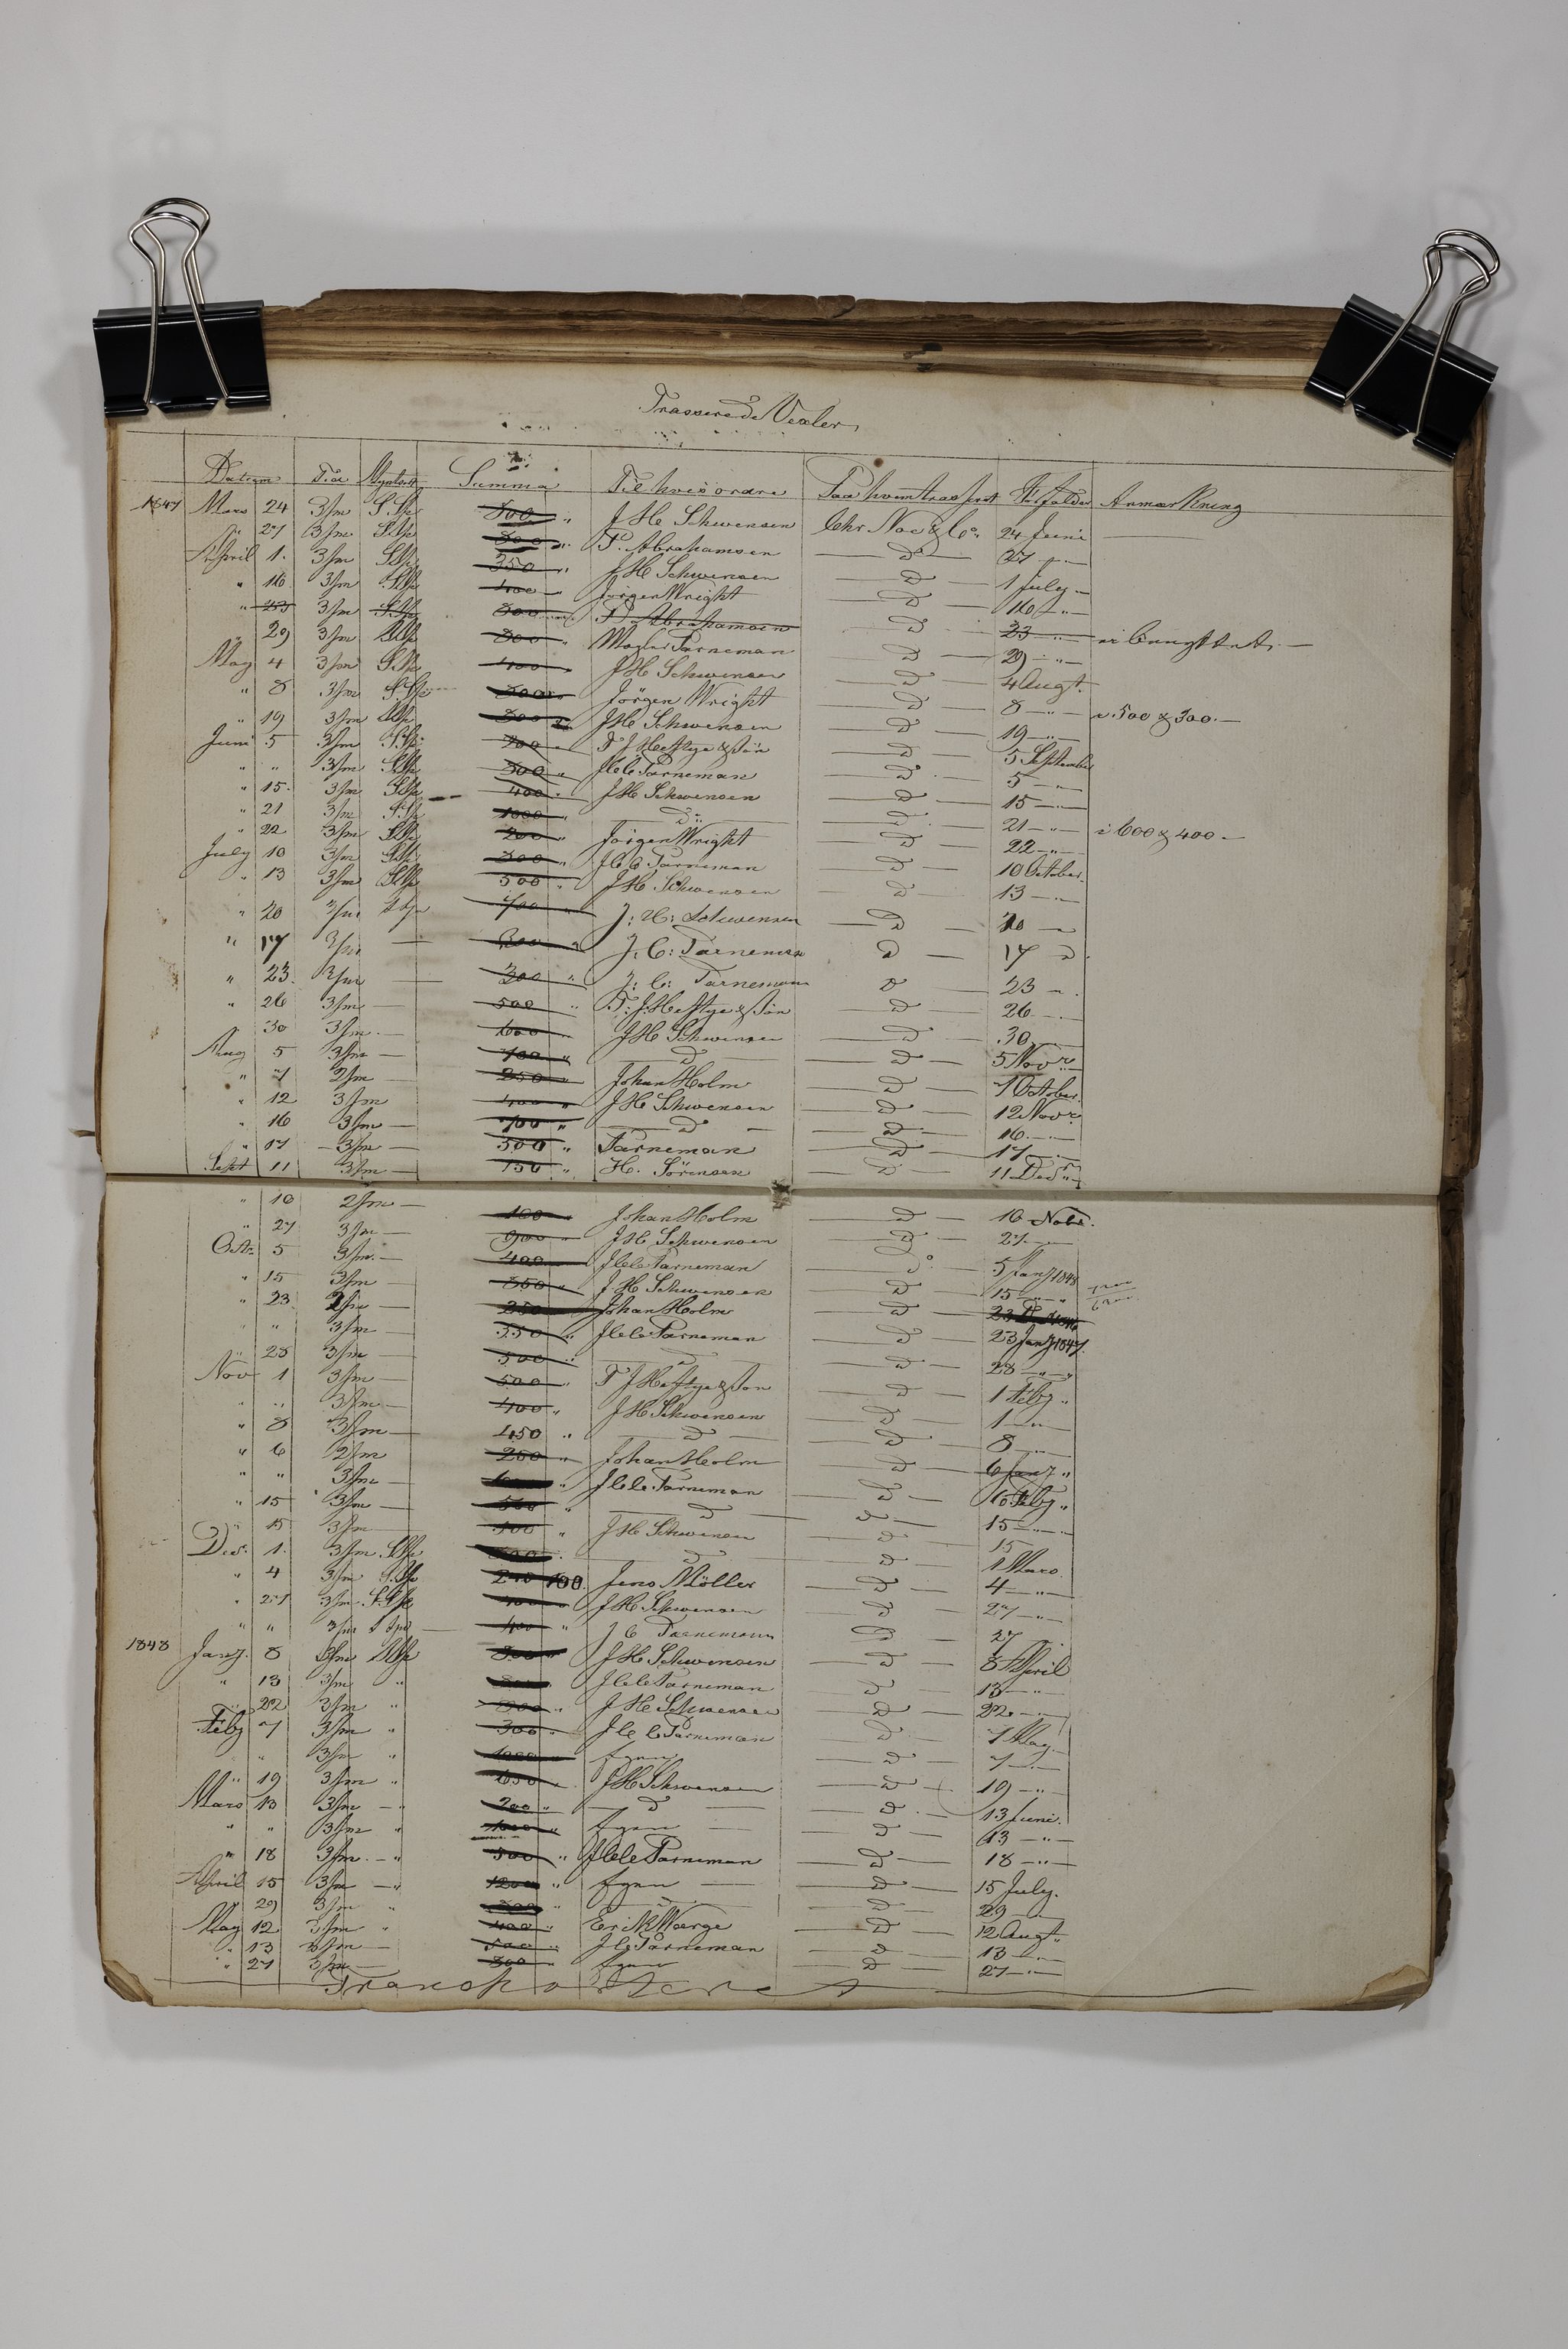 Trasserede Vexler,
Datum Tid Myntsort Summa Til hvis ordre Paa hvem trasseret Forfalder Anmærkning
1847 Mars 24 3/m S.Sp 500 " J H Schwensen Chr Noe & Co. 24 Juni
" 27 3/m S.Sp 500 " P. Abrahamsen D 27 "
April 1. 3/m S.Sp 350 " J H Schwensen D 1 July "
" 16 3/m S.Sp 400 Jörgen Wright D 16 "
" 23 3/m S.Sp 300 P. Abrahamsen D 23 " ei benyttet.
29 3/m S.Sp 300 " Parneman D 29 "
May 4 3/m S.Sp 400 J H Schwensen D 4 Augt.
" 8 3/m S.Sp 800 Jörgen Wright D 8 " a 500 & 300.
" 19 3/m S.Sp J H Schwensen D 19 "
Juni 5 3/m S.Sp T J Heftye & Sön D 5 September
" " 3/m S.Sp 300 " J C C Parneman D 5 "
" 15. 3/m S.Sp 400 J H Schwensen D 15 "
" 21 3/m S.Sp 1000 D 21 " a 600 & 400
" 22 3/m S.Sp Jörgen Wright D 22 "
July 10 3/m S.Sp 300 " J C C Parneman D 10 October.
" 13 3/m S.Sp 500 " J H Schwensen D 13 "
" 20 3/m 700 J: H: Schwensen D 20
" 17 3/m J: C: Parneman D 17 D
" 23. 3/m 300 " J: C: Parneman D 23
" 26 3/m 500 " T. J. Heftye & Sön D 26
" 30 3/m 600 J H Schwensen D 30
Aug 5 3/m 700 " D D 5 Novr.
" 7 2/m 250 " Johan Holm D 7 October.
" 12 3/m 400 " J H Schwensen D 12 Novr.
" 16 3/m 700 " D D 16 "
" 17 3/m 500 " Parneman D 17 "
Sept 11 3/m 150 " H. Sörensen D 11 Decr.
" 16 2/m 100 Johan Holm D 16 Nobr.
" 27 3/m 900 " J H Schwensen D 27
Octr 5 3/m 400 J C C Parneman D 5 Jany 1848
" 15 3/m 350 " J H Schwensen D 15 "
" 23 2/m 250 Johan Holm D 23 D
" " 3/m 550 " J C C Parneman D 23 Jany 1847.
" 28 3/m 500 " D D 28 "
Nov 1 3/m 500 " T J Heftye & Sön D 1 Feby "
" " 3/m 400 " J H Schwensen D 1 "
" 8 3/m 450 " D D 8 "
" 6 2/m 200 " Johan Holm D 6 Jany "
" " 3/m J C C Parneman D 6 Feby "
" 15 3/m 500 " D D 15 "
" 15 3/m " J H Schwensen D 15
Dec. 1. 3/m S.Sp D D 1 Mars.
" 4 3/m S.Sp 240 100. Jens Möller D 4 "
" 27 3/m S.Sp 400 J H Schwensen D 27 "
" " 3/m S Sp 400 " J C Parnemann D 27
1848 Jany. 8 3/m S.Sp J H Schwensen D 8 April
" 13 3/m " J C C Parneman D 13 "
" 22 3/m " J H Schwensen D 22 "
Feby 7 3/m " 300 " J C C Parneman D 7 May
" 3/m " 1000 Egen D 7
" 19 3/m " 650 J H Schwensen D 19 "
Mars 13 3/m " 200 " D D 13 Juni.
" " 3/m " Egen D 13 "
" 18 3/m " 500 " J C C Parneman D 18 "
April 15 3/m " 1200 " Egen D 15 July.
" 29 3/m " D D 29
May 12 3/m " 400 " Erik Warge D 12 Augt.
" 13 3/m 500 J C Parneman D 13 "
" 27 3/m " Egen D 27 "
Transporteret